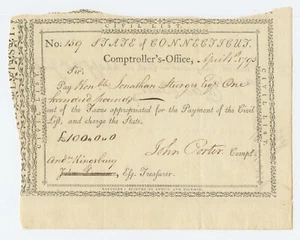 CIVIL LIST.
No. 159 STATE of CONNECTICUT.
Comptroller's-Office, April 1793
Sir,
Pay Honble Jonathan Sturges Esqr One
hundred pounds
out of the Taxes appropriated for the Payment of the Civil
List, and charge the State.
£100.0.0
John Porter, Compt.
Andw Kingsbury
Esq. Treasurer.
CIVIL LIST
CIVIL LIST